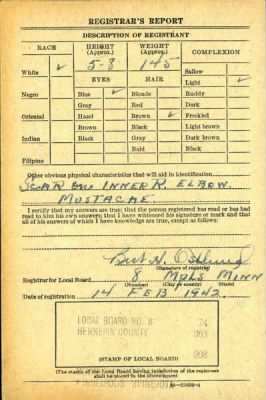 REGISTRAR'S REPORT
DESCRIPTION OF REGISTRANT
RACE HEIGHT (Approx.) WEIGHT (Approx.) COMPLEXION
White ✓ 5-8 145 Sallow
Light ✓
EYES HAIR
Negro Blue ✓ Blonde Ruddy
Gray Red Dark
Oriental Hazel Brown ✓ Freckled
Brown Black Light brown
Indian Black Gray Dark brown
Bald Black
Filipino
Other obvious physical characteristics that will aid in identification
SCAR ON INNER R. ELBOW.
MUSTACAE
I certify that my answers are true; that the person registered has read or has had
read to him his own answers; that I have witnessed his signature or mark and that
all of his answers of which I have knowledge are true, except as follows:
(Signature of registrar)
Registrar for Local Board 8 MPLS MINN
(Number) (City or county) (State)
Date of registration 14 FEB 1942
LOCAL BOARD NO. 8 74
HENNEPIN COUNTY 053
008
(STAMP OF LOCAL BOARD)
(The stamp of the Local Board having jurisdiction of the registrant
shall be placed in the above space)
MINNEAPOLIS, MINNESOTA